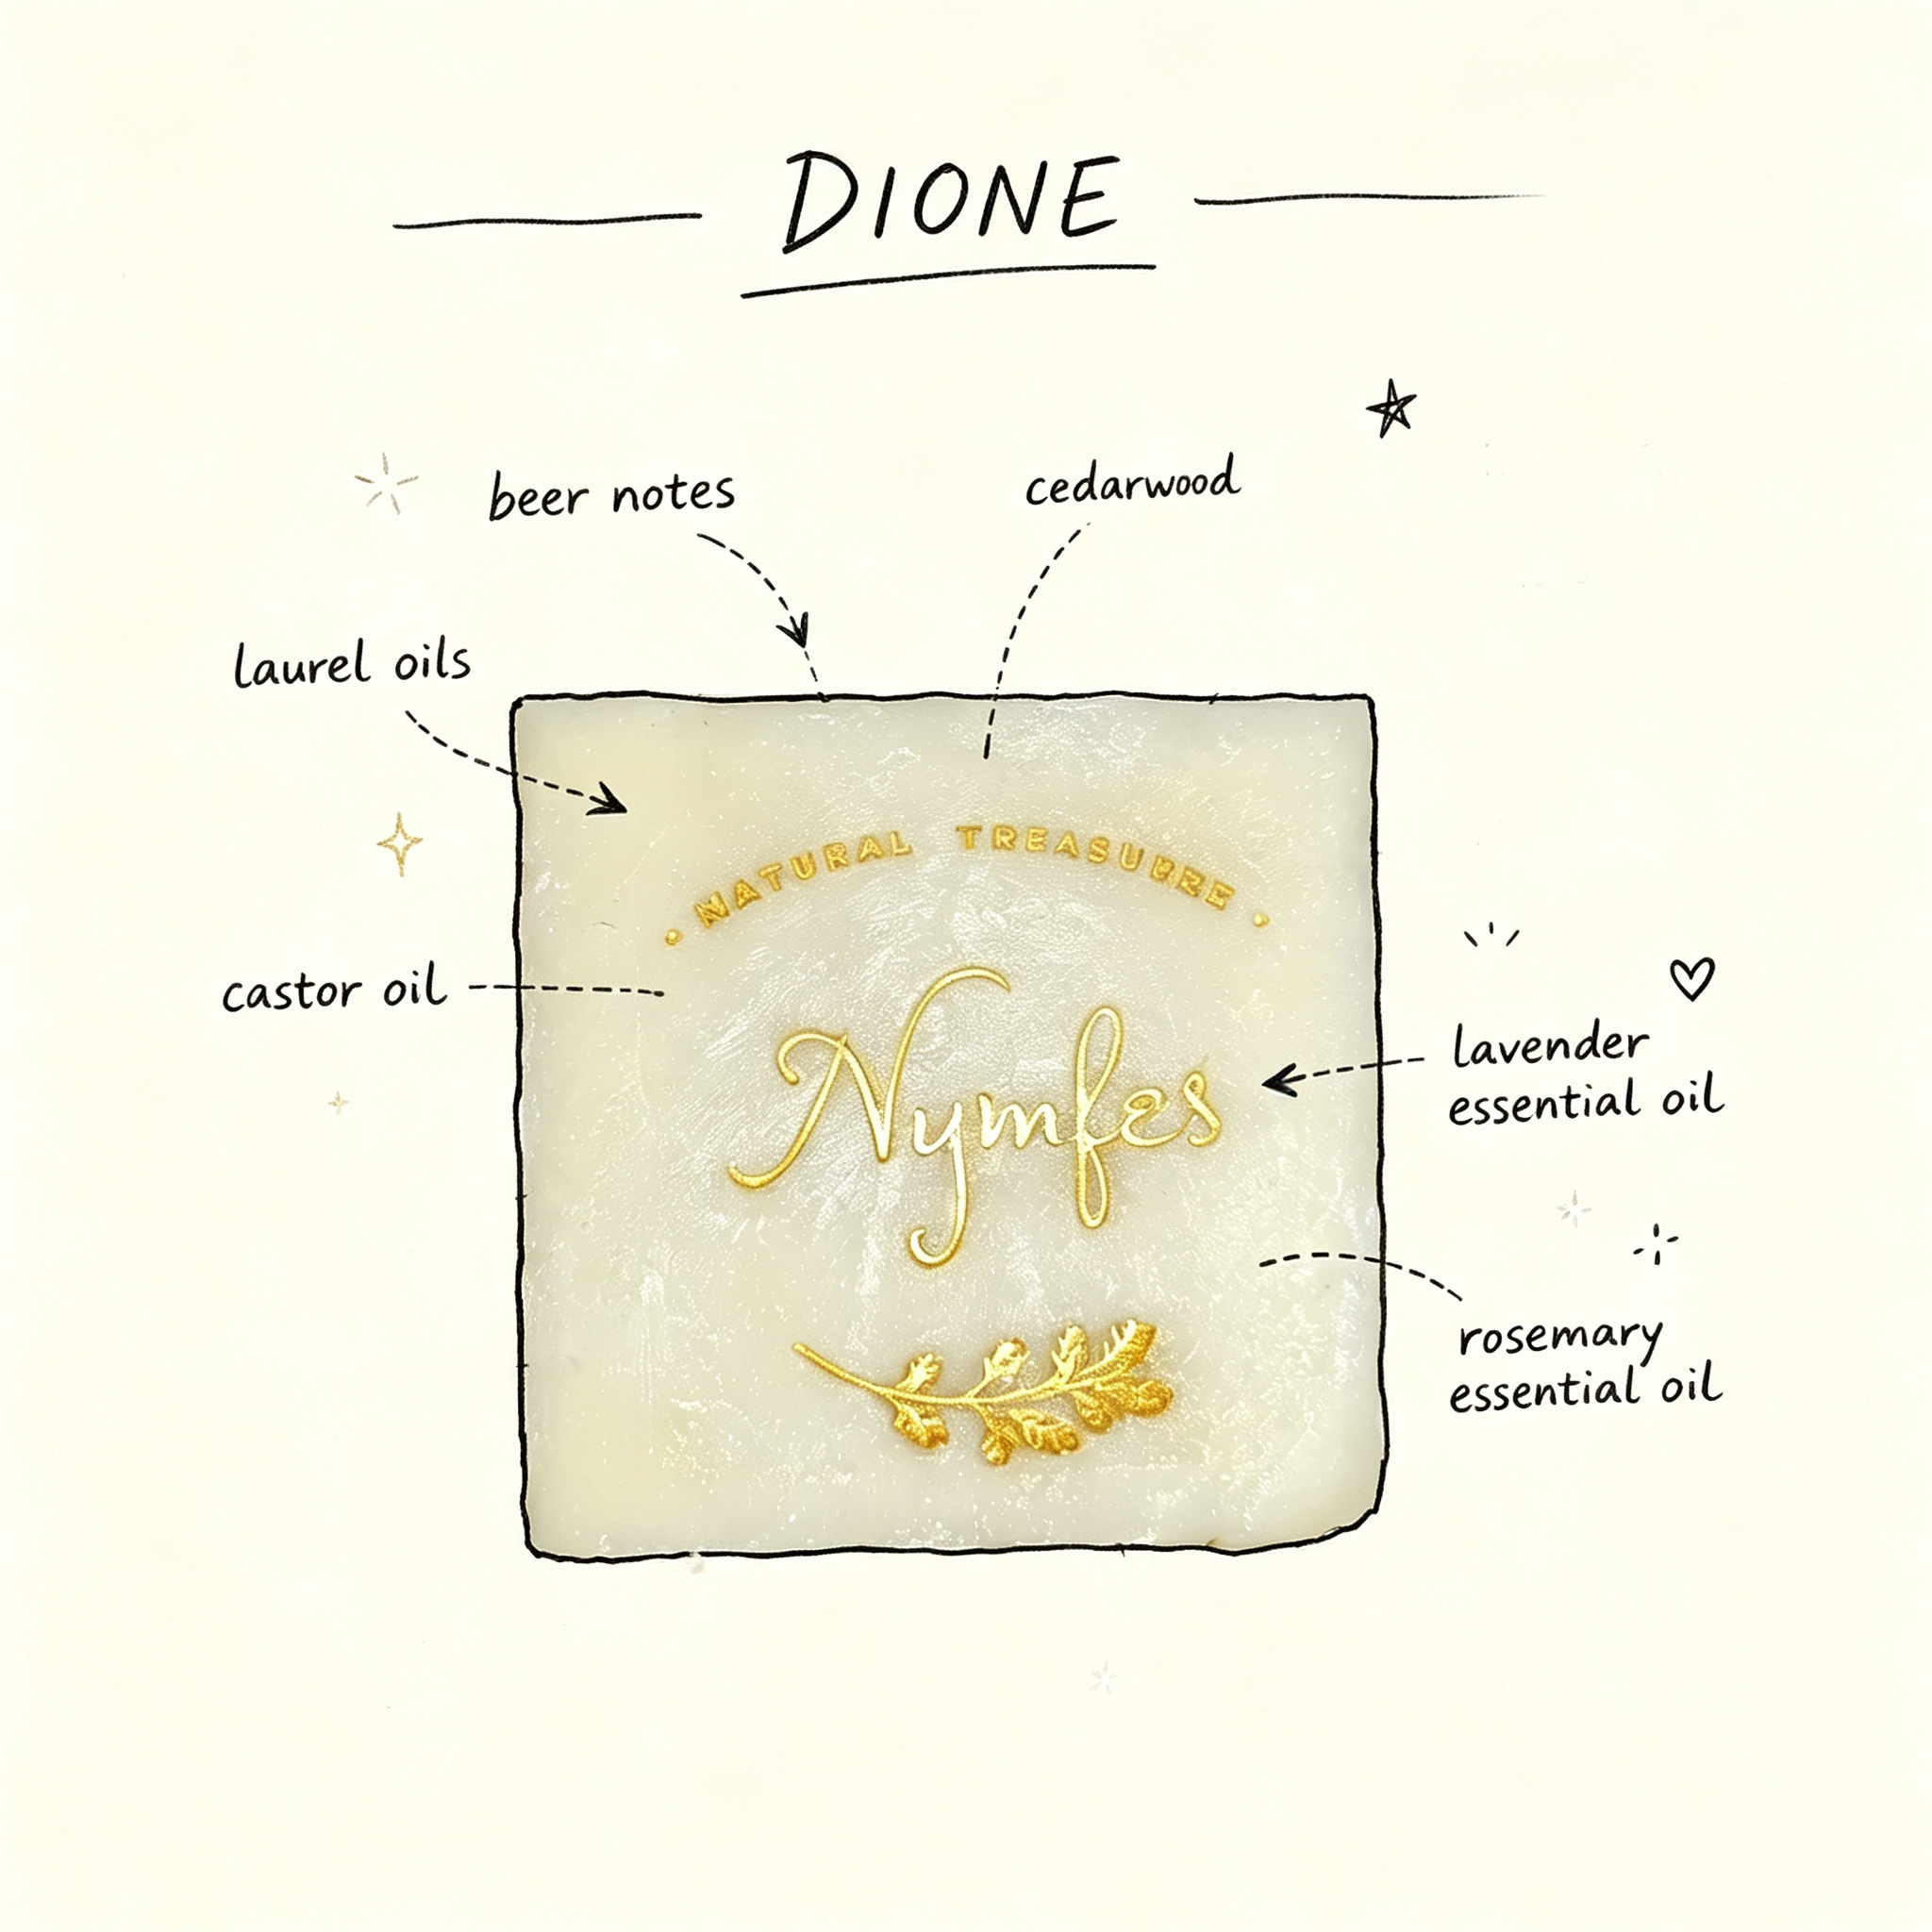 DIONE
beer notes
cedarwood
laurel oils
• NATURAL TREASURE •
castor oil
Nymfes
lavender
essential oil
rosemary
essential oil